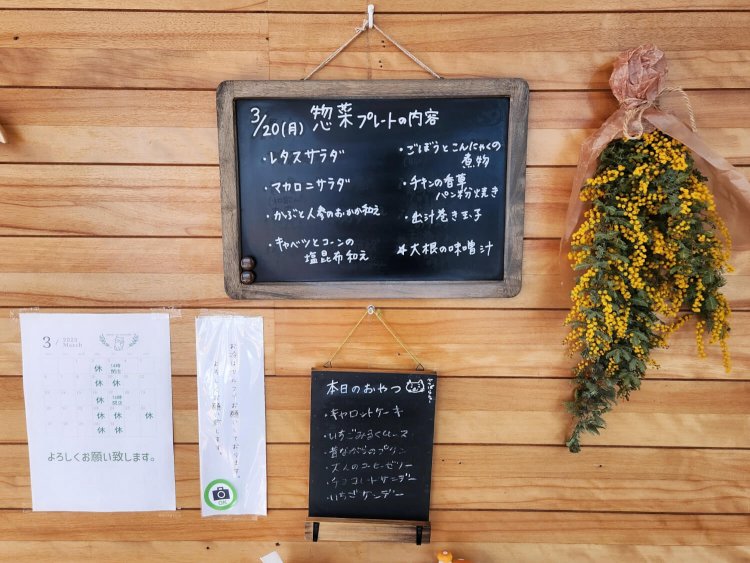 3/20(月) 惣菜プレートの内容
・レタスサラダ
・マカロニサラダ
・かぶと人参のおかか和え
・キャベツとコーンの
塩昆布和え
・ごぼうとこんにゃくの
煮物
・チキンの香草
パン粉焼き
・出汁巻き玉子
★大根の味噌汁
3/ 2023
March
休 14時
閉店
休 休
休 14時
閉店
休 休 休
休 休
よろしくお願い致します。
お冷はセルフでお願いしております。
よろしくお願い致します。
OK
本日のおやつ
・キャロットケーキ
・いちごみるくムース
・昔ながらのプリン
・大人のコーヒーゼリー
・チョコレートサンデー
・いちごサンデー